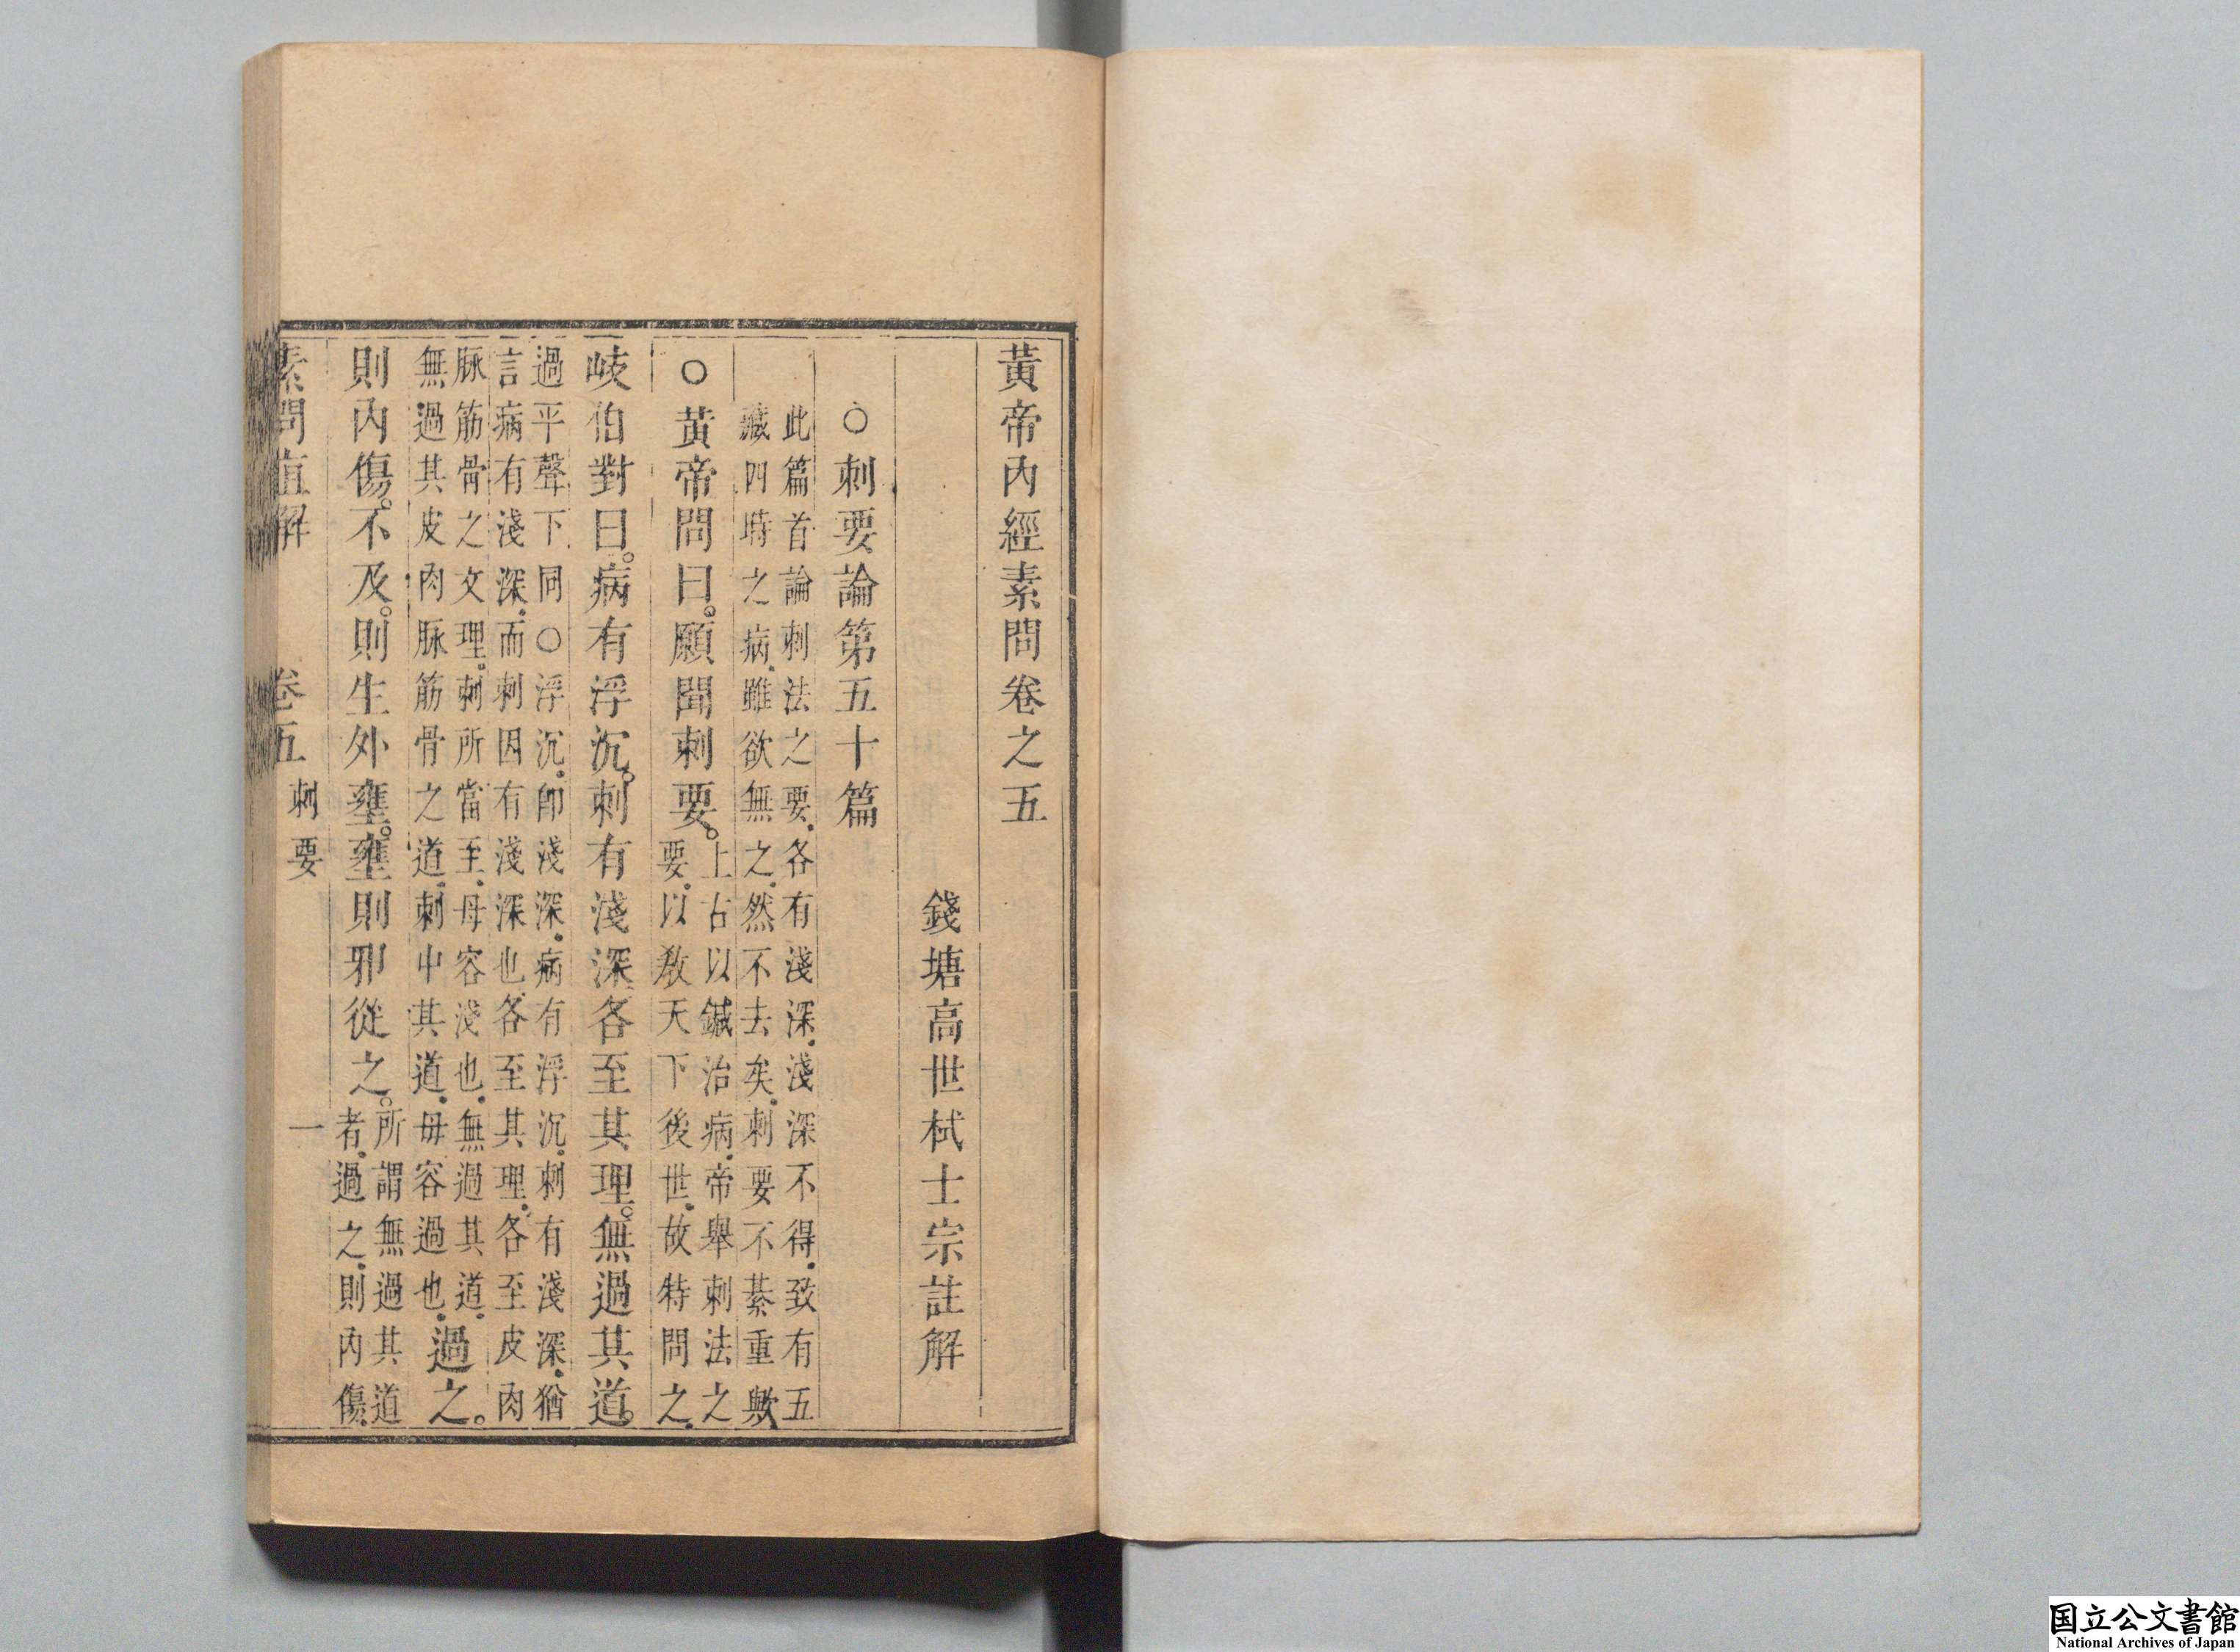 黃帝內經素問卷之五
錢塘高世栻士宗註解
○刺要論第五十篇
此篇首論刺法之要各有淺深淺深不得致有五
藏四時之病雖欲無之然不去矣刺要不綦重歟
○黃帝問曰願聞刺要
上古以鍼治病帝舉刺法之
要以教天下後世故特問之
岐伯對曰病有浮沉刺有淺深各至其理無過其道
過平聲下同○浮沉卽淺深病有浮沉刺有淺深猶
言病有淺深而刺因有淺深也各至其理各至皮肉
脉筋骨之文理刺所當至母容淺也無過其道
無過其皮肉脉筋骨之道刺中其道毋容過也
過之
則內傷不及則生外壅壅則邪從之
所謂無過其道
者過之則內傷
素問直解 卷五 刺要 一
国立公文書館
National Archives of Japan